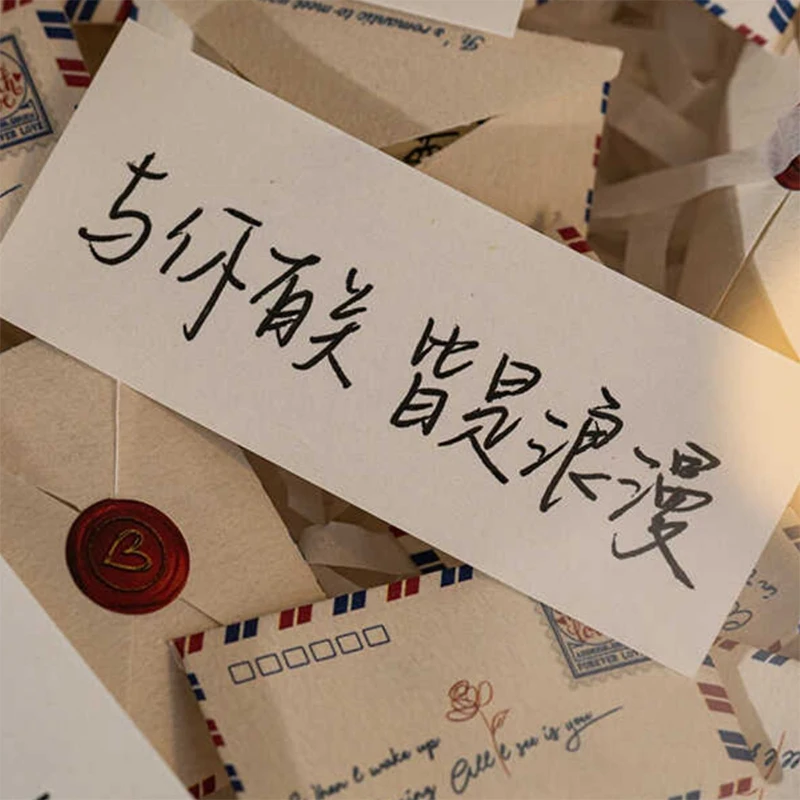 It's romantic to meet
与你有关 皆是浪漫
FOREVER LOV
when I wake up
All I see is you